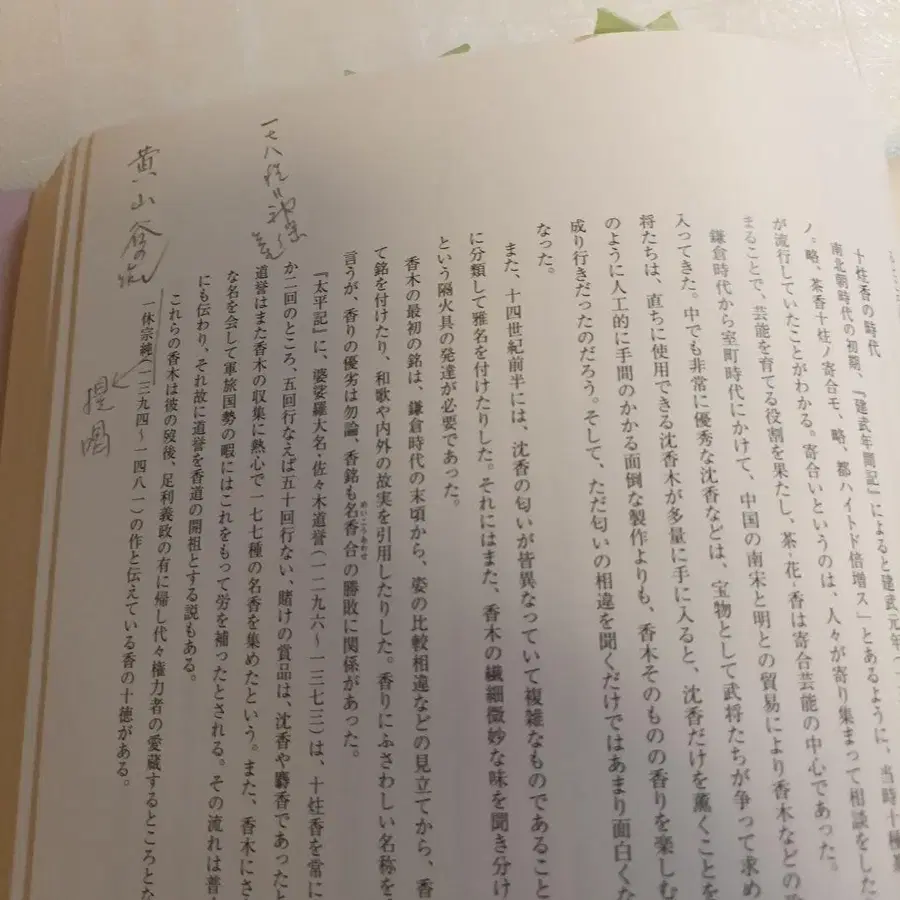 十炷香の時代
南北朝時代の初期、『建武年間記』によると建武元年
略、茶香十炷ノ寄合モ、略、都ハイトド倍増ス」とあるように、当時十種
が流行していたことがわかる。寄合いというのは、人々が寄り集まって相談をした
まることで、芸能を育てる役割を果たし、茶・花・香は寄合芸能の中心であった。
鎌倉時代から室町時代にかけて、中国の南宋と明との貿易により香木などの
入ってきた。中でも非常に優秀な沈香などは、宝物として武将たちが争って求め
将たちは、直ちに使用できる沈香木が多量に手に入ると、沈香だけを薫くことを
のように人工的に手間のかかる面倒な製作よりも、香木そのものの香りを楽しむ
成り行きだったのだろう。そして、ただ匂いの相違を聞くだけではあまり面白くな
なった。
また、十四世紀前半には、沈香の匂いが皆異なっていて複雑なものであること
に分類して雅名を付けたりした。それにはまた、香木の繊細微妙な味を聞き分け
という隔火具の発達が必要であった。
香木の最初の銘は、鎌倉時代の末頃から、姿の比較相違などの見立てから、香
て銘を付けたり、和歌や内外の故実を引用したりした。香りにふさわしい名称を
言うが、香りの優劣は勿論、香銘も名香合めいこうあわせの勝敗に関係があった。
『太平記』に、婆娑羅大名・佐々木道誉(一二九六〜一三七三)は、十炷香を常に
か二回のところ、五回行なえば五十回行ない、賭けの賞品は、沈香や麝香であったと
道誉はまた香木の収集に熱心で一七七種の名香を集めたという。また、香木にさ
な名を会して軍旅国勢の暇にはこれをもって労を補ったとされる。その流れは普
にも伝わり、それ故に道誉を香道の開祖とする説もある。
これらの香木は彼の歿後、足利義政の有に帰し代々権力者の愛蔵するところとな
一休宗純(一三九四〜一四八一)の作と伝えている香の十徳がある。
一七八種
黄山谷の
提唱